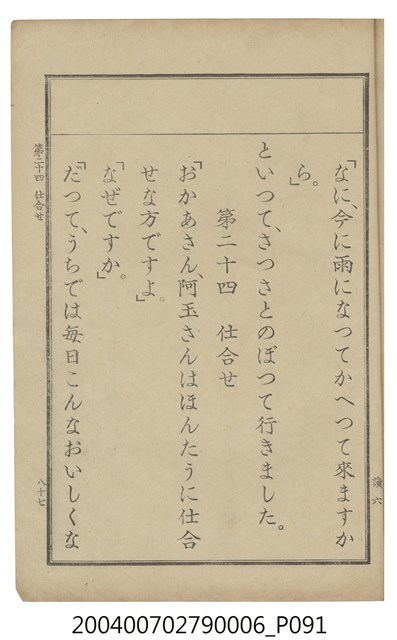 「なに、今に雨になつてかへつて來ますか
ら。」
といつて、さつさとのぼつて行きました。
第二十四　仕合せ
「おかあさん、阿玉さんはほんたうに仕合
せな方ですよ。」
「なぜですか。」
「だつて、うちでは毎日こんなおいしくな
讀六
第二十四　仕合せ
八十七
200400702790006_P091